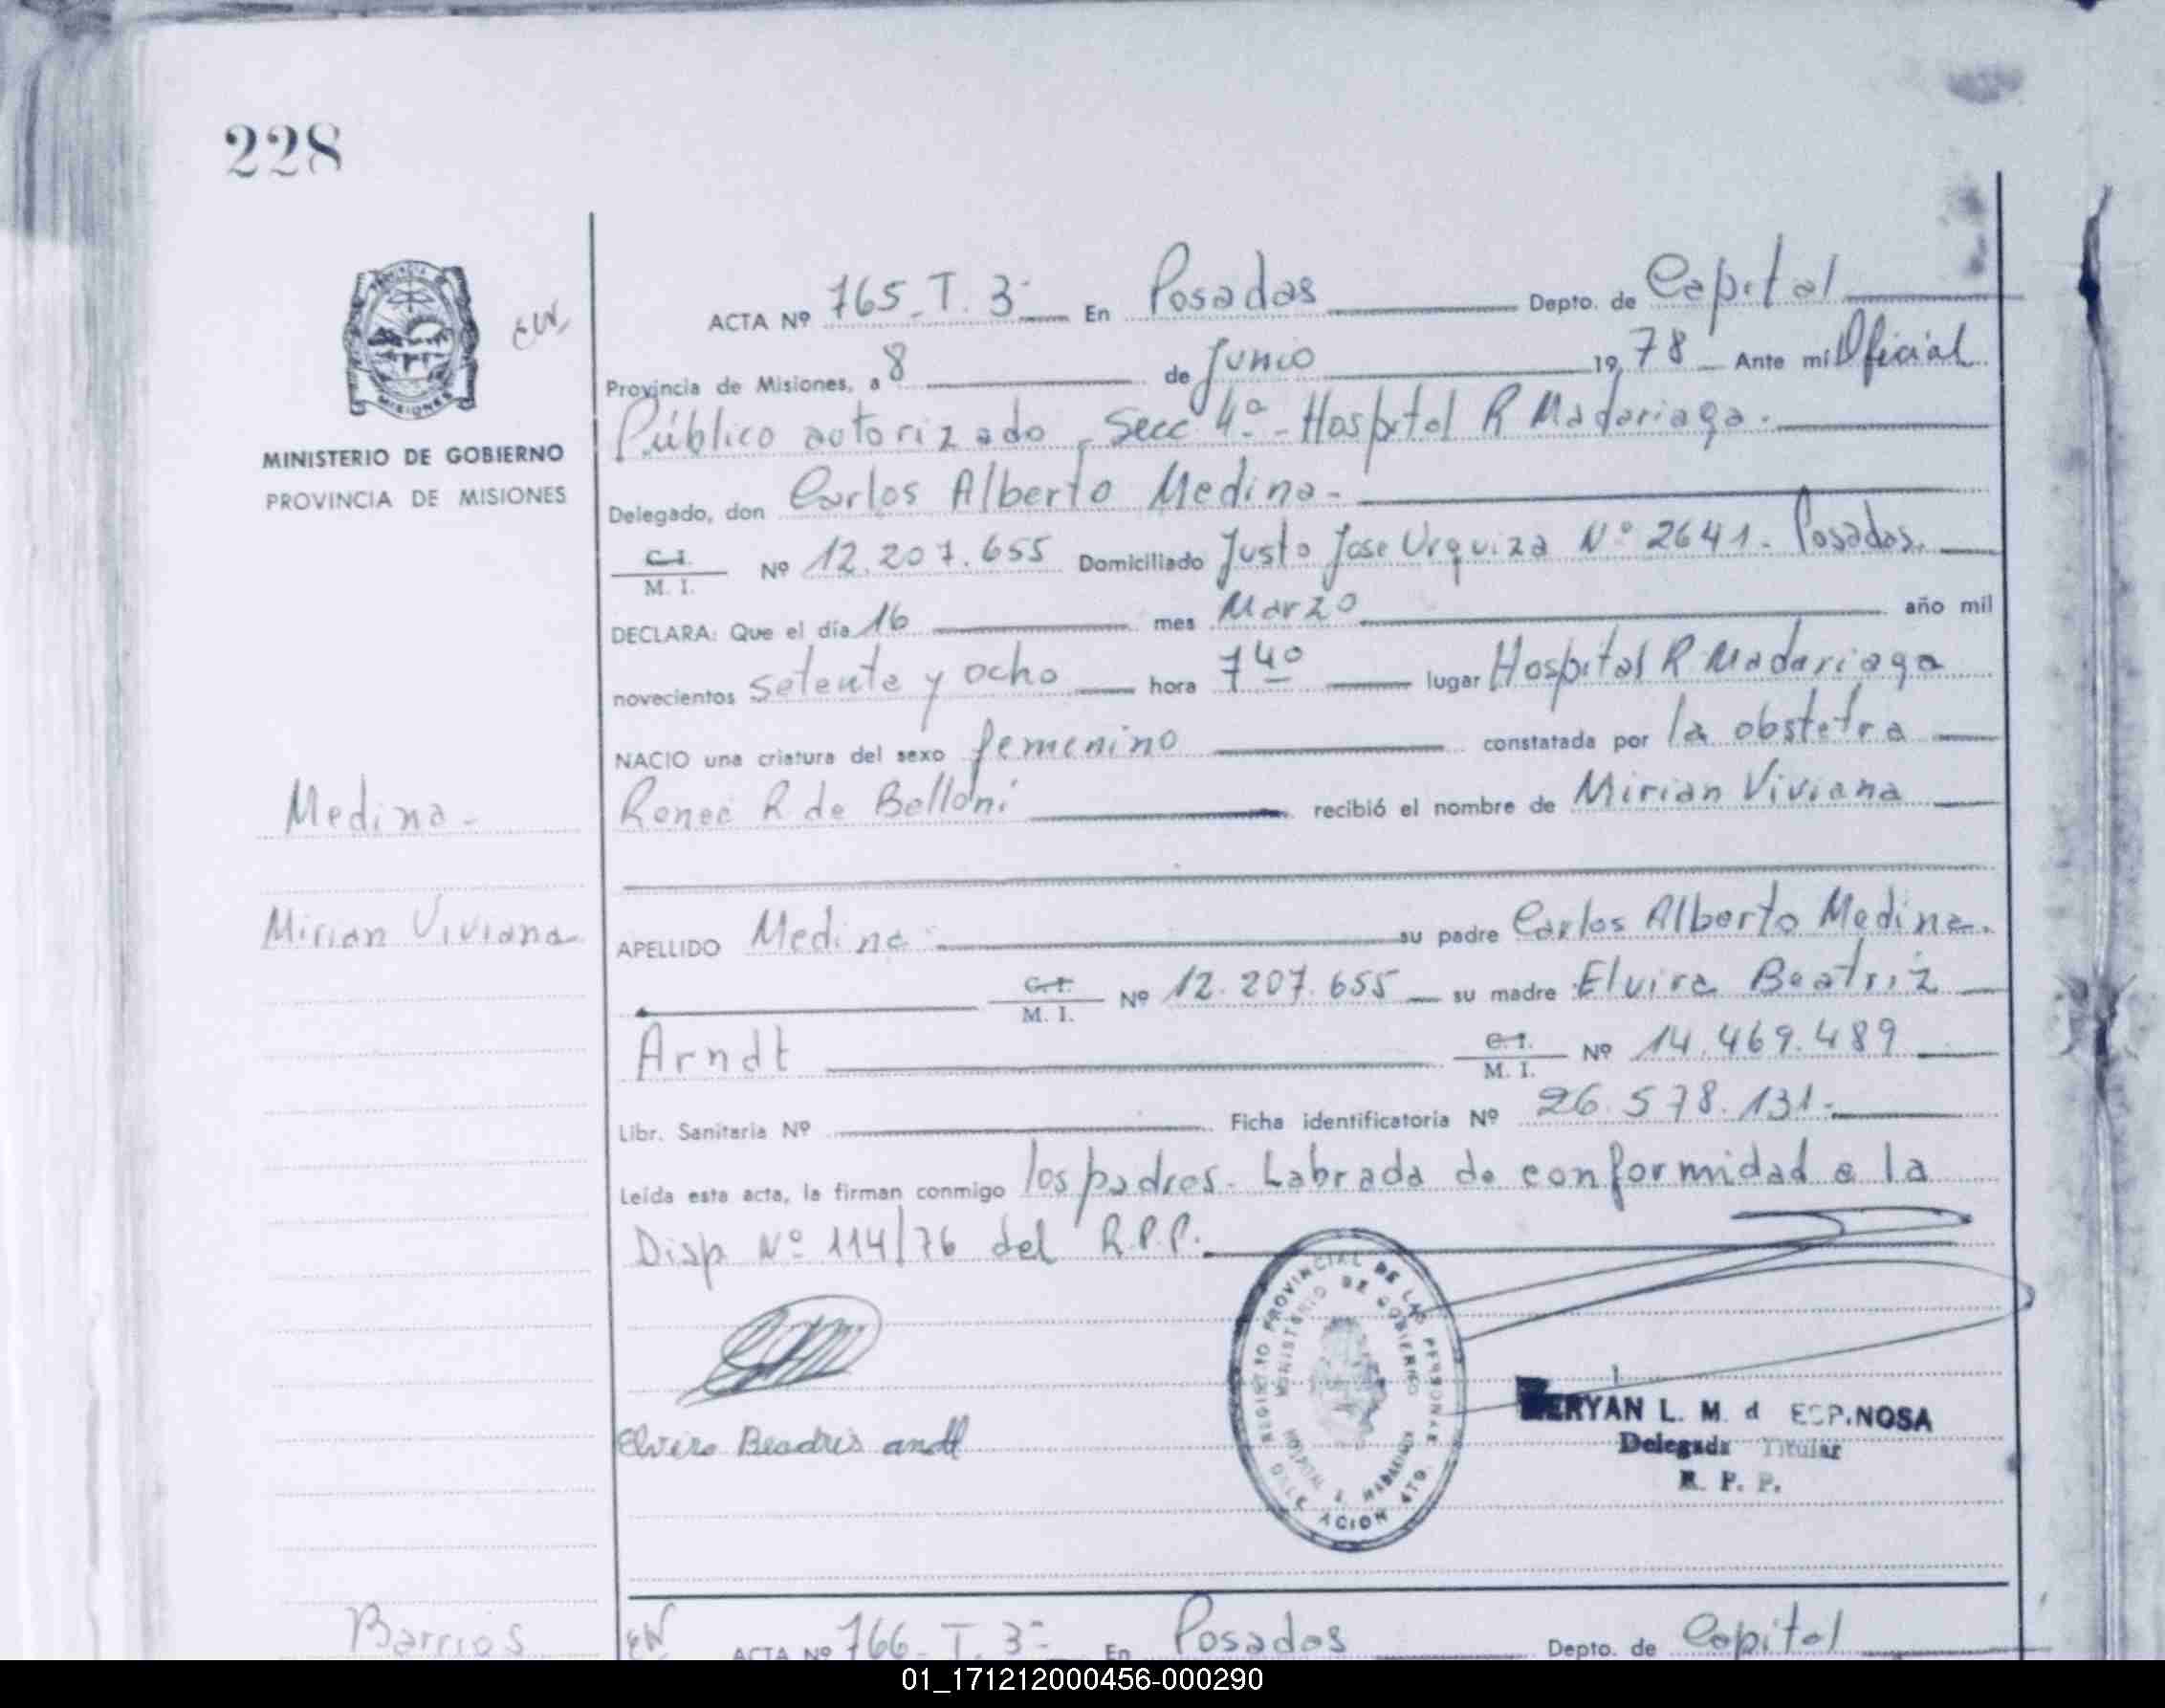 228
EW.
ACTA Nº 765_T. 3- En Posadas Depto. de Capital
Provincia de Misiones, a 8 de Junio 19 78 Ante mi Oficial
Público autorizado - Secc 4ª - Hospital R Madariaga.
MINISTERIO DE GOBIERNO
PROVINCIA DE MISIONES
Delegado, don Carlos Alberto Medina-
C. I.
M. I. Nº 12.207.655 Domiciliado Justo Jose Urquiza Nº 2641- Posadas.
DECLARA: Que el día 16 mes Marzo año mil
novecientos setenta y ocho hora 7 40 lugar Hospital R Madariaga
NACIO una criatura del sexo femenino constatada por la obstetra
Medina-
R de Belloni recibió el nombre de Mirian Viviana
Mirian Viviana
APELLIDO Medina su padre Carlos Alberto Medina.
C. I.
M. I. Nº 12.207.655 su madre Elvira Beatriz
Arndt C. I.
M. I. Nº 14.469.489
Libr. Sanitaria Nº Ficha identificatoria Nº 26.578.131-
Leída esta acta, la firman conmigo los padres. Labrada de conformidad a la
Disp Nº 114/76 del R.P.P.
REGISTRO PROVINCIAL DE LAS PERSONAS
MINISTERIO DE GOBIERNO
HOSPITAL R. MADARIAGA
DELEGACION 4TO.
ERYAN L. M. d ESPINOSA
Delegada Titular
R. P. P.
Elvira Beadris andt
Barrios
EW
ACTA Nº 766_T. 3- En Posadas Depto. de Capital
01_171212000456-000290